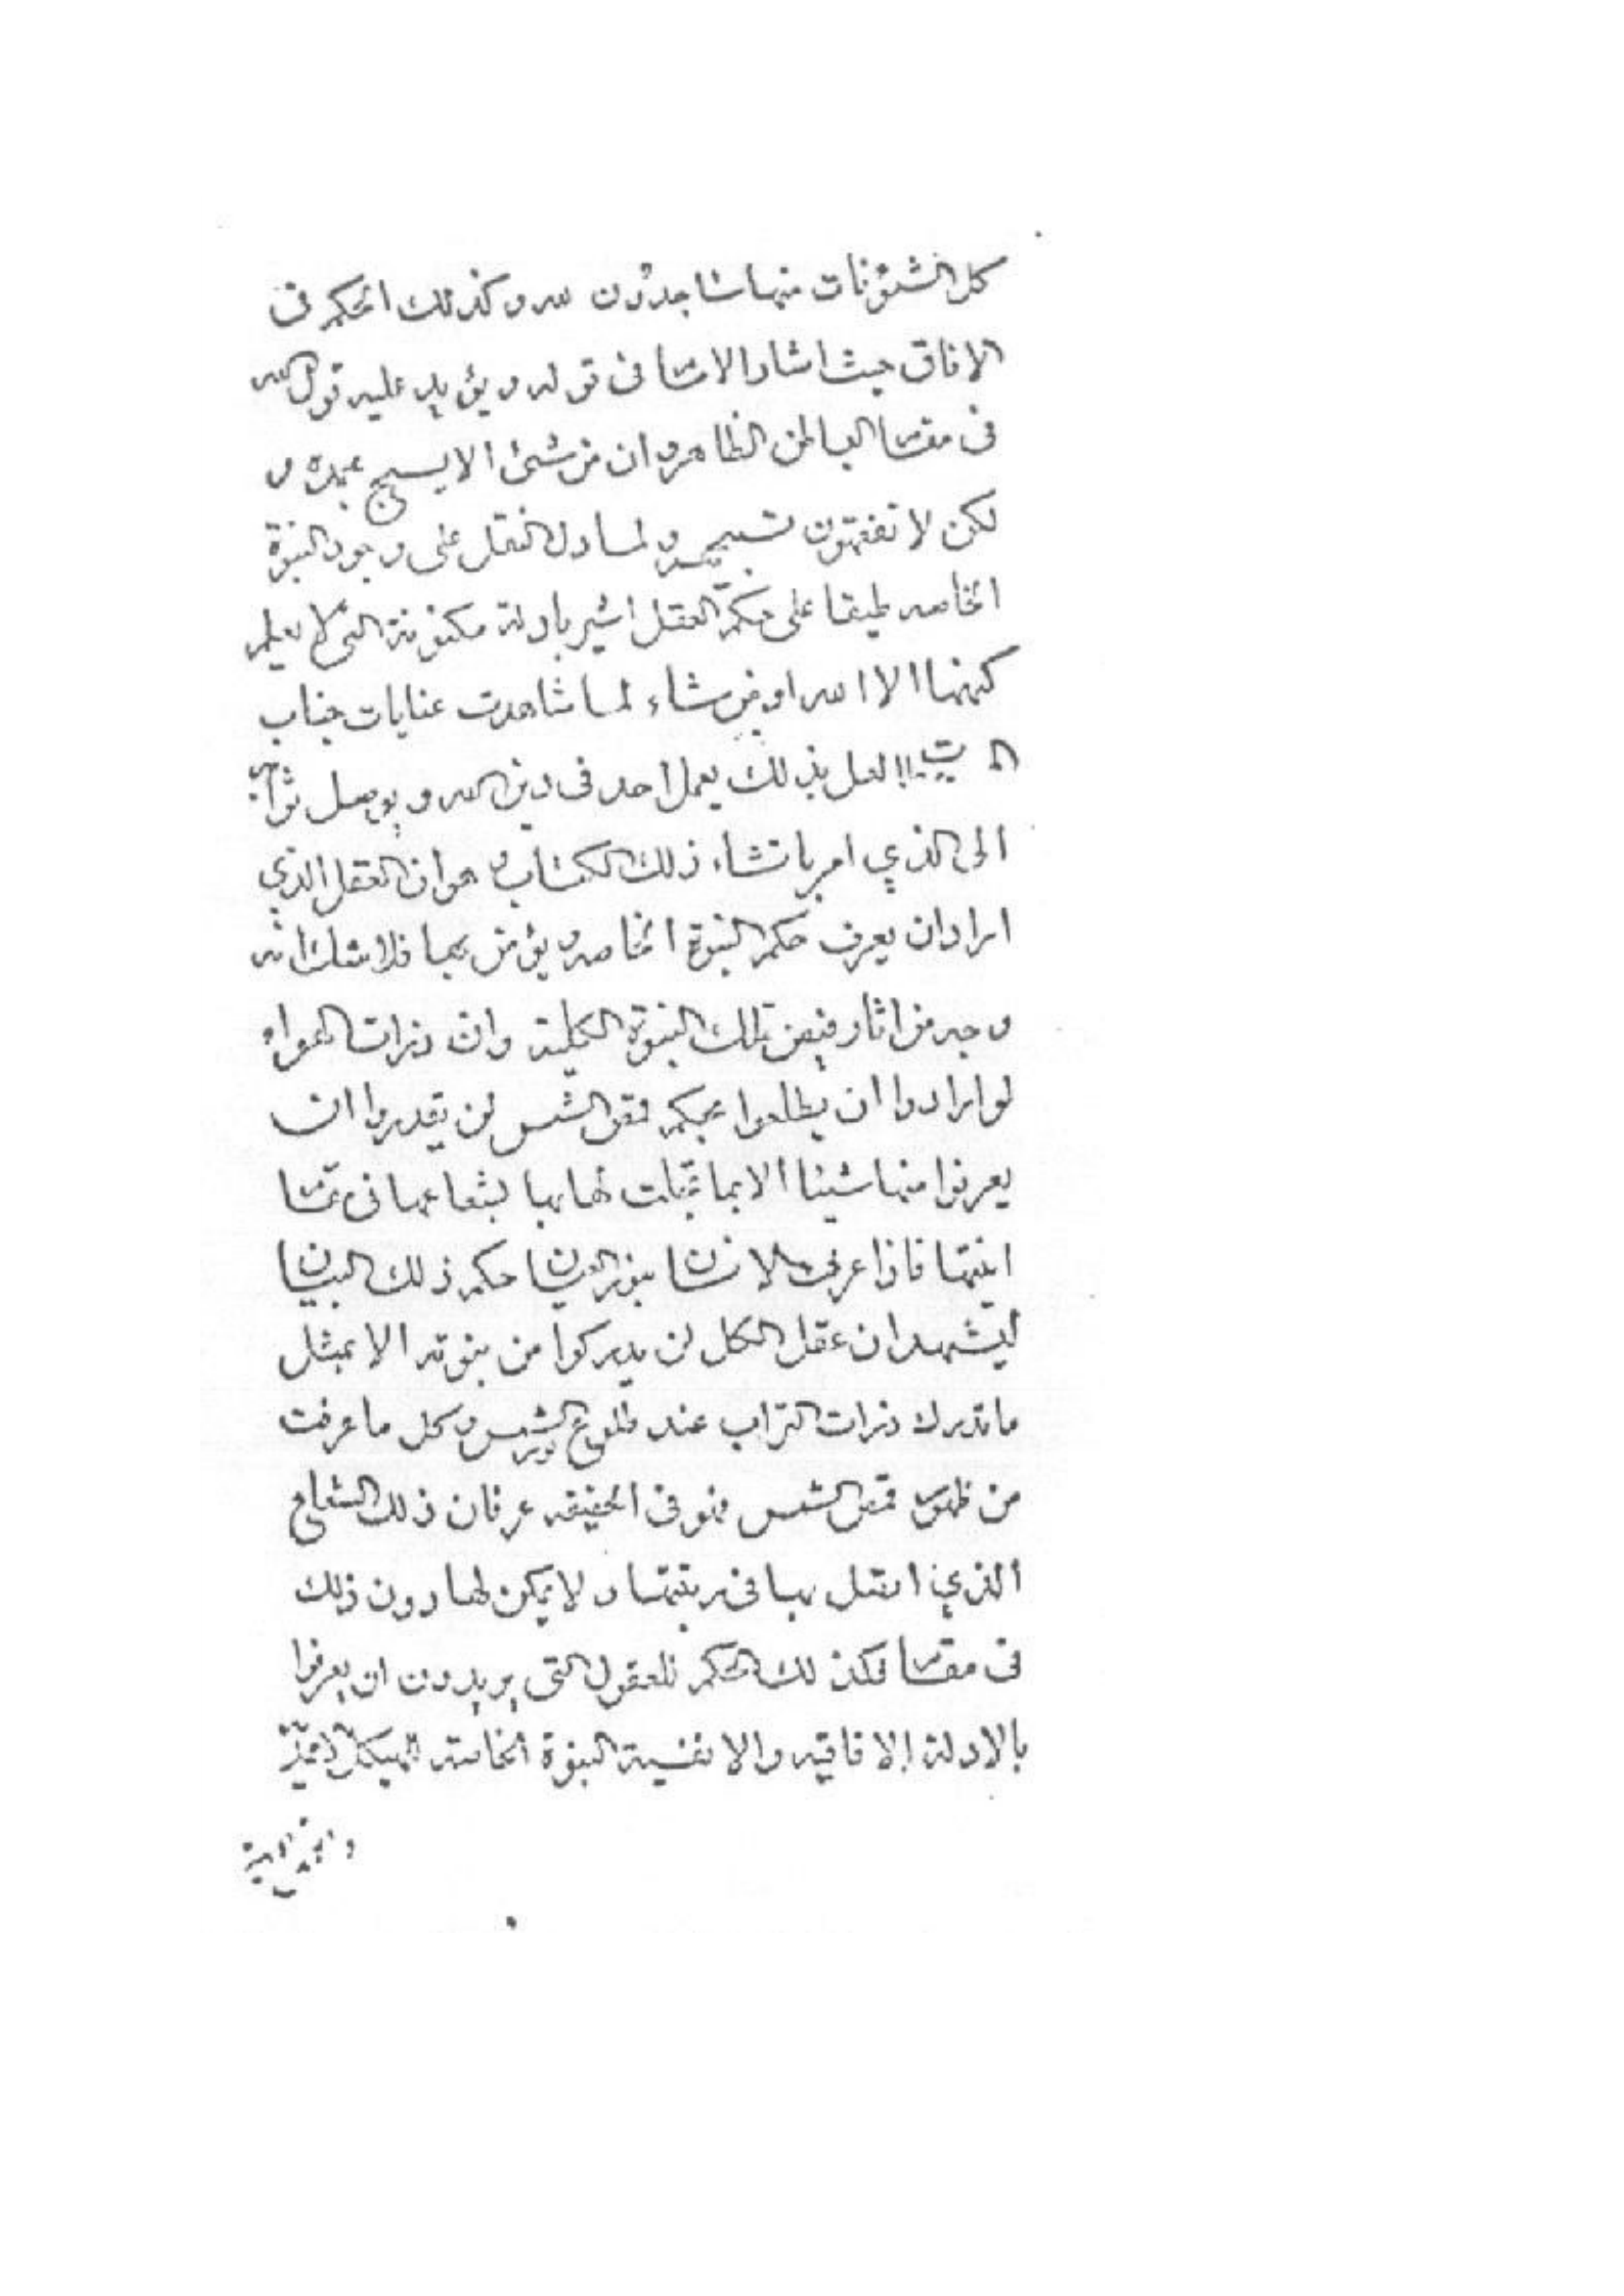 كل الشئونات منها ساجدون لله و كذلك الحكم فى
الافاق حيث اشار الامام فى قوله و يؤيد عليه قول الله
فى مقام الباطن الظاهر و ان من شئ الا يسبح بحمده و
لكن لا تفقهون تسبيحهم و لما دل العقل على وجود النبوة
الخاصه طبقا على حكم العقل اشير بادلة مكنونة التى لا يعلم
كنهها الا الله او من شاء لما شاهدت عنايات جناب
لعل بذلك يعمل احد فى دين الله و يوصل ثوابه
الى الذي امر بانشاء ذلك الكتاب و هو ان العقل الذي
اراد ان يعرف حكم النبوة الخاصه و يؤمن بها فلا شك انه
وجد من اثار فيض تلك النبوة الكلية وان ذرات الهواء
لو ارادوا ان يطلعوا بحكم قمص الشمس لن يقدروا ان
يعرفوا منها شيئا الا بما تجلت لها بها بشعاعها فى مقام
انيتها فاذا عرف الانسان بنور العيان حكم ذلك البيان
ليشهد ان عقل الكل لن يدركوا من نبوته الا بمثل
ما تدرك ذرات التراب عند طلوع نور الشمس و كل ما عرفت
من ظهور قمص الشمس فهو فى الحقيقه عرفان ذلك الشعاع
الذي اتصل بها فى رتبتها و لا يمكن لها دون ذلك
فى مقام فكذلك الحكم للعقول التى يريدون ان يعرفوا
بالادلة الافاقيه والانفسية النبوة الخاصة